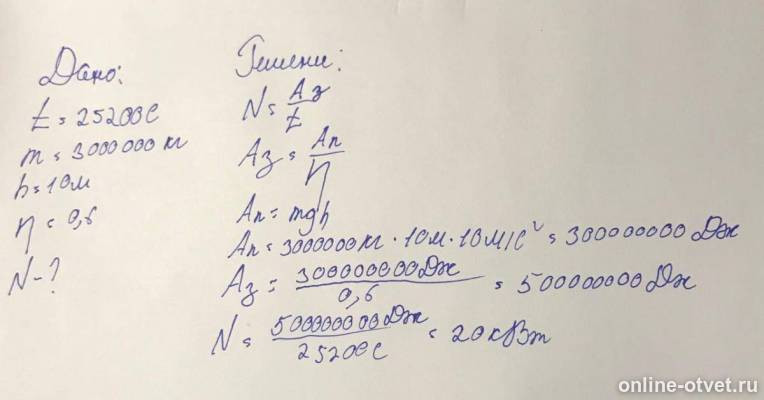 Дано:
t = 25200с
m = 3000000 кг
h = 10м
η = 0,6
N - ?
Решение:
N = Aз/t
Aз = Aп/η
Aп = mgh
Aп = 3000000кг · 10м · 10м/с² = 300000000 Дж
Aз = 300000000Дж/0,6 = 500000000 Дж
N = 500000000Дж/25200с = 20кВт
online-otvet.ru